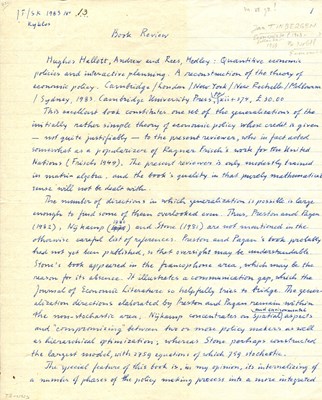 [T/SK 1983 No 13
Kyklos
1
Book Review
Hughes Hallett, Andrew and Rees, Medley: Quantitative economic
policies and interactive planning. A reconstruction of the theory of
economic policy. Cambridge / London / New York / New Rochelle / Melbourn
/ Sydney, 1983. Cambridge University Press, £ 30.00
This excellent book constitutes one set of the generalisations of the
initially rather simple theory of economic policy whose credit is given
— not quite justifiably — to the present reviewer, who in fact acted
somewhat as a populariser of Ragnar Frisch's work for the United
Nations (Frisch 1949). The present reviewer is only modestly trained
in matrix algebra and the book's quality in that purely mathematical
sense will not be dealt with.
The number of directions in which generalisation is possible is large
enough to find some of them overlooked even. Thus, Preston and Pagan
(1982), Nijkamp (1980) and Stone (1981) are not mentioned in the
otherwise careful list of references. Preston and Pagan's book probably
had not yet been published, so that oversight may be understandable
Stone's book appeared in the francophone area, which may be the
reason for its absence. It illustrates a communication gap, which the
Journal of Economic Literature so helpfully tries to bridge. The gene-
ralization directions elaborated by Preston and Pagan remain within
the non-stochastic area, Nijkamp concentrates on spatial and environmental aspects
and "compromising" between two or more policy makers as well
as hierarchical optimisation; whereas Stone perhaps constructed
the largest model, with 2759 equations of which 759 stochastic.
The special feature of this book is, in my opinion, its internalizing of
a number of phases of the policy making process into a more integrated